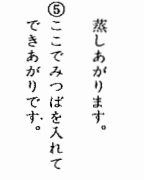 蒸しあがります。
⑤ここでみつばを入れて
できあがりです。